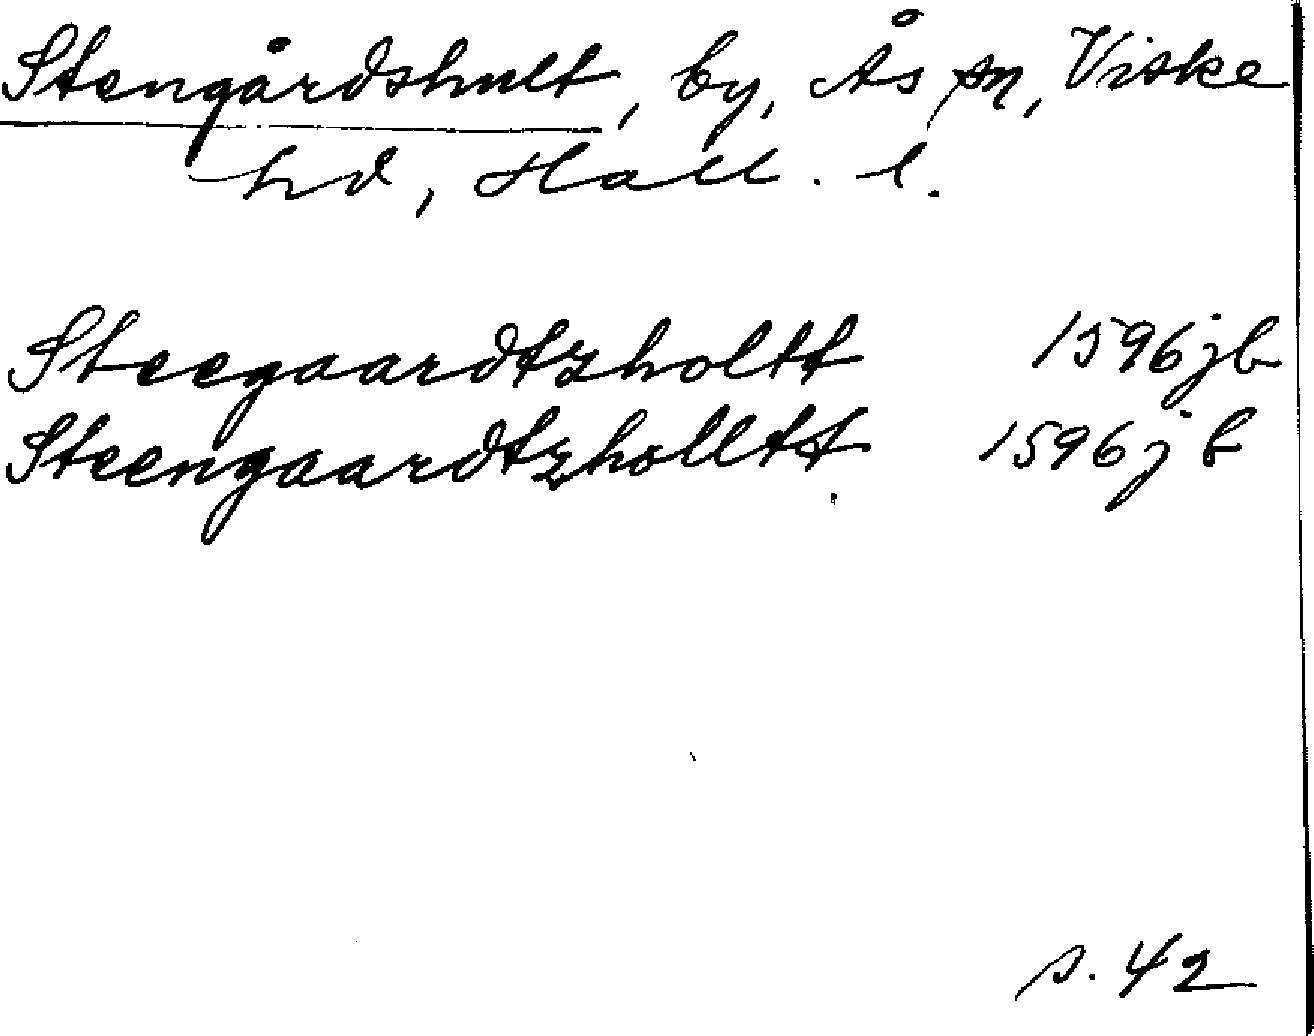 Stengårdshult, by, Ås sn, Viske
hd, Hall. l.
Steegaardtzholtt 1596 jb
Steengaardtzholltt 1596 jb
s. 42